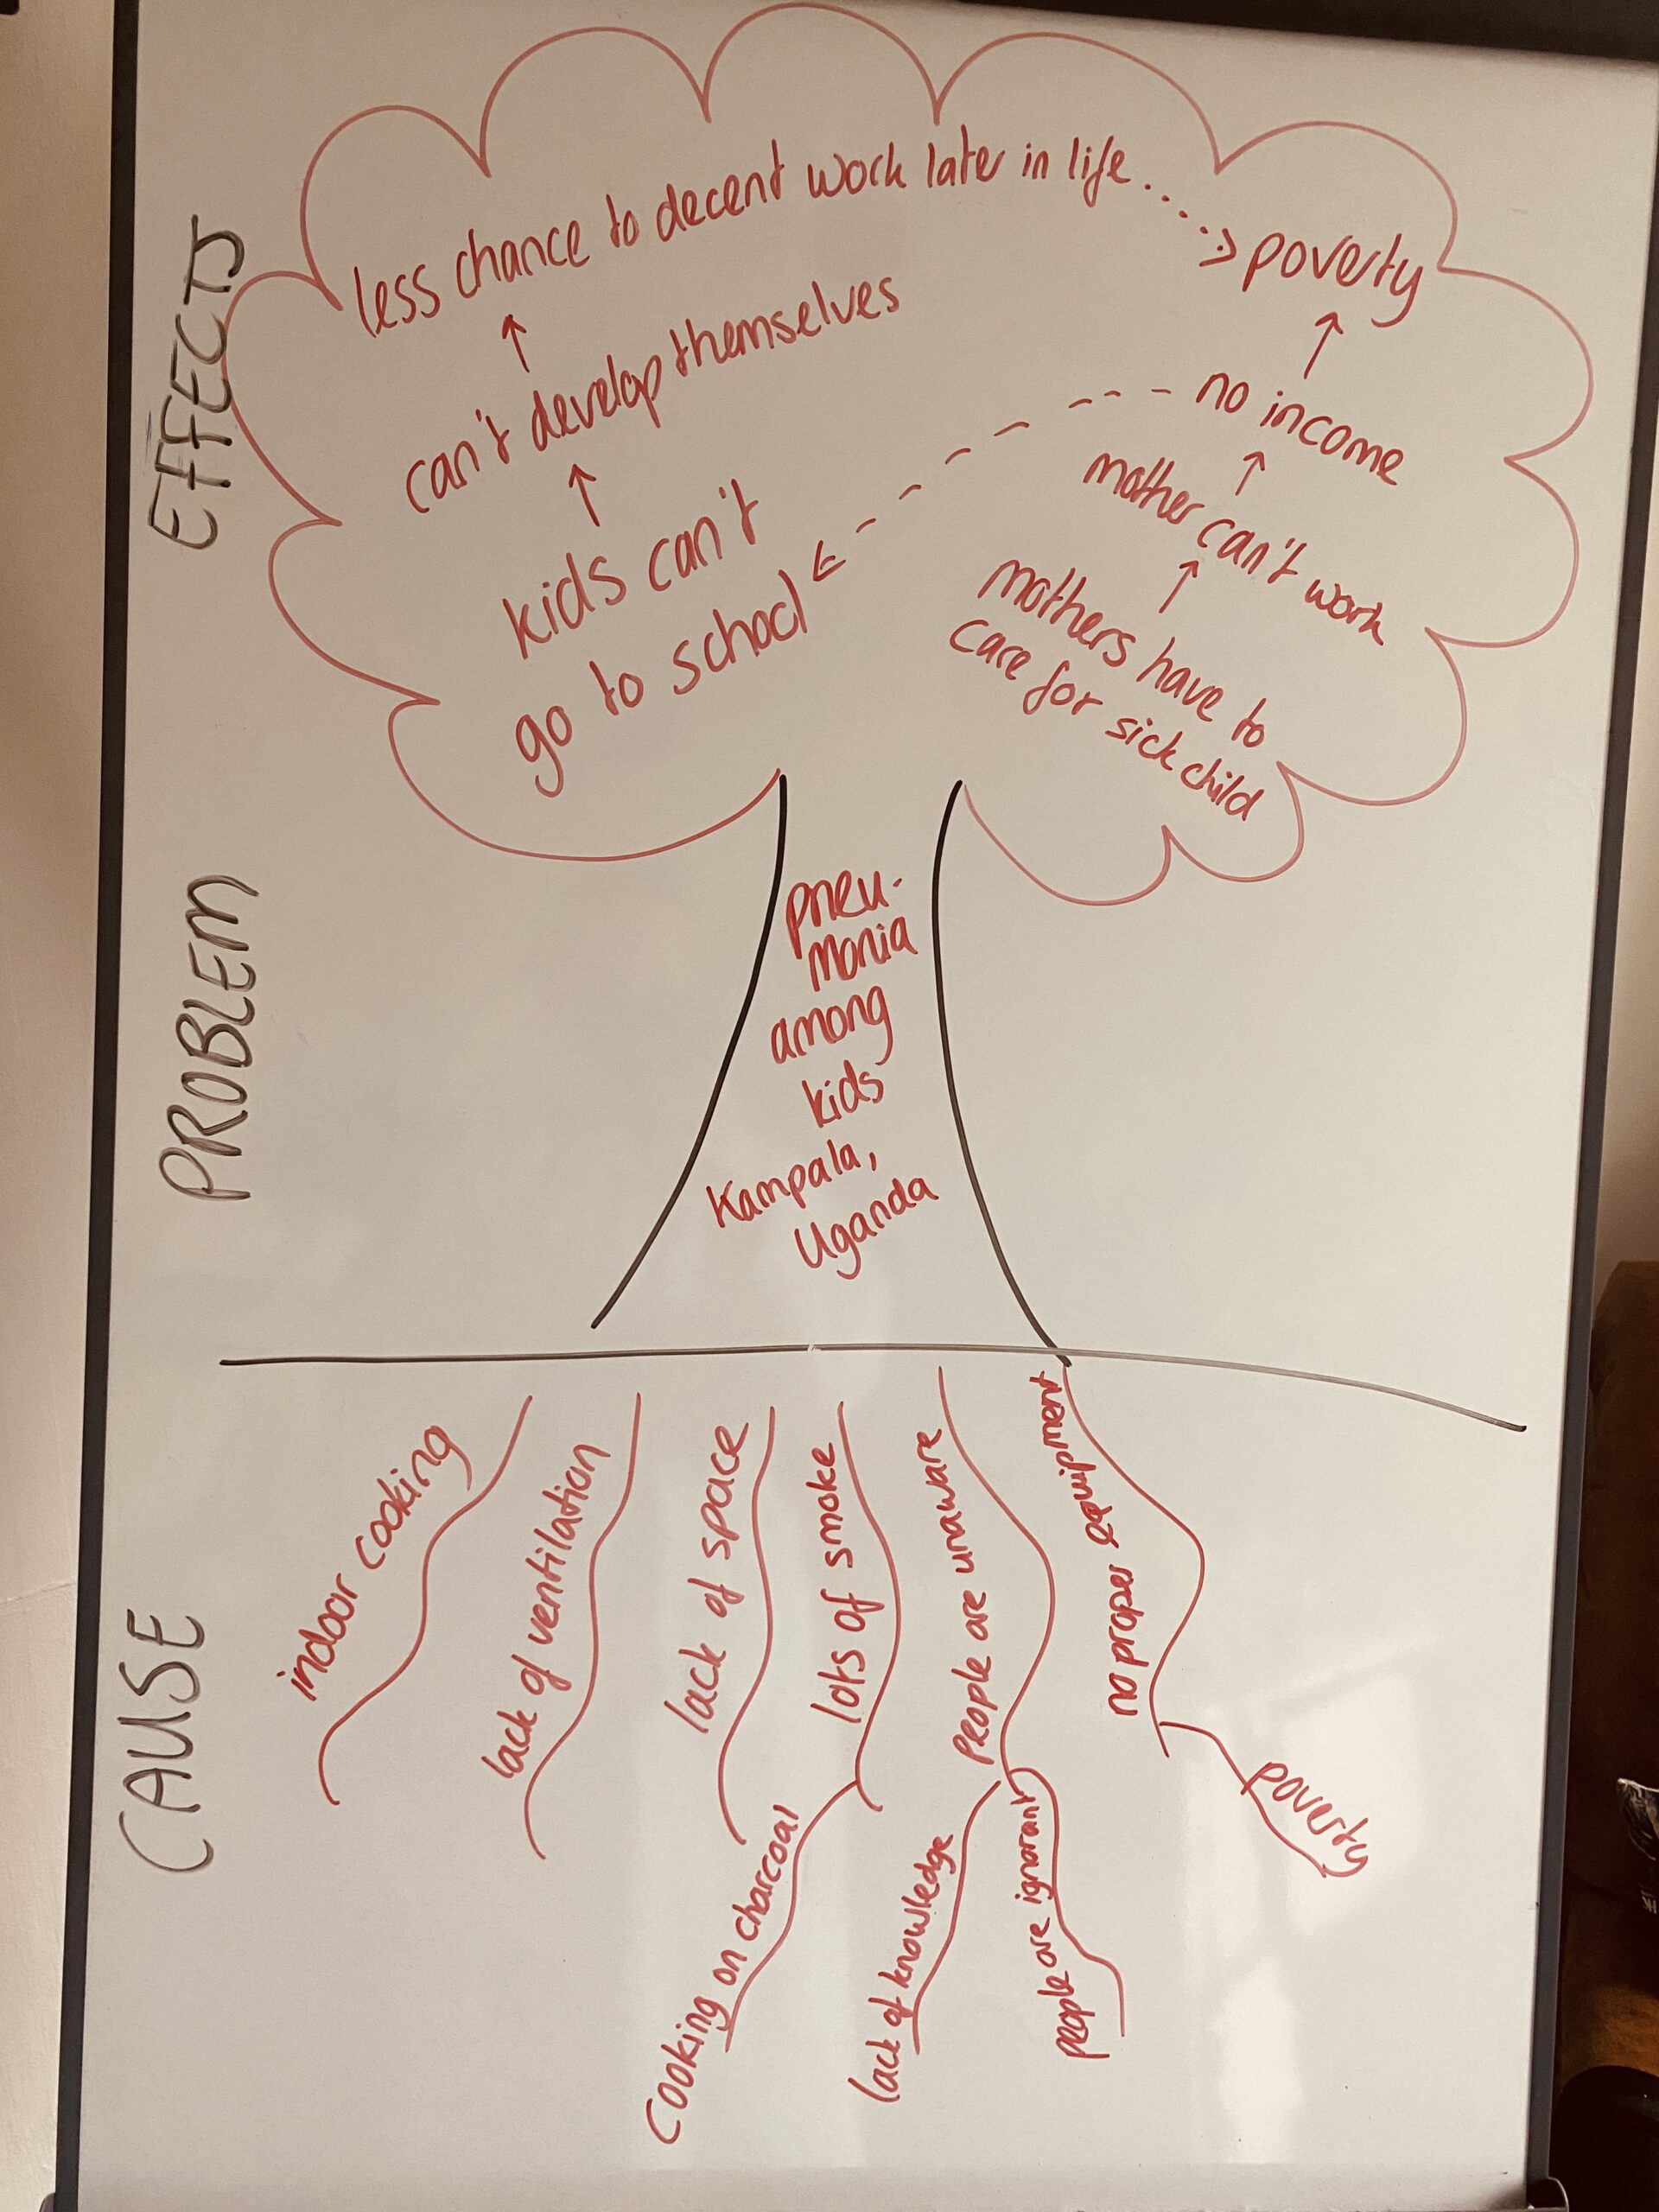 EFFECTS
less chance to decent work later in life
poverty
can't develop themselves
no income
kids can't
go to school
mother can't work
mothers have to
care for sick child
PROBLEM
pneu-
monia
among
kids
Kampala,
Uganda
CAUSE
indoor cooking
lack of ventilation
lack of space
lots of smoke
people are unaware
no proper equipment
cooking on charcoal
lack of knowledge
people are ignorant
poverty